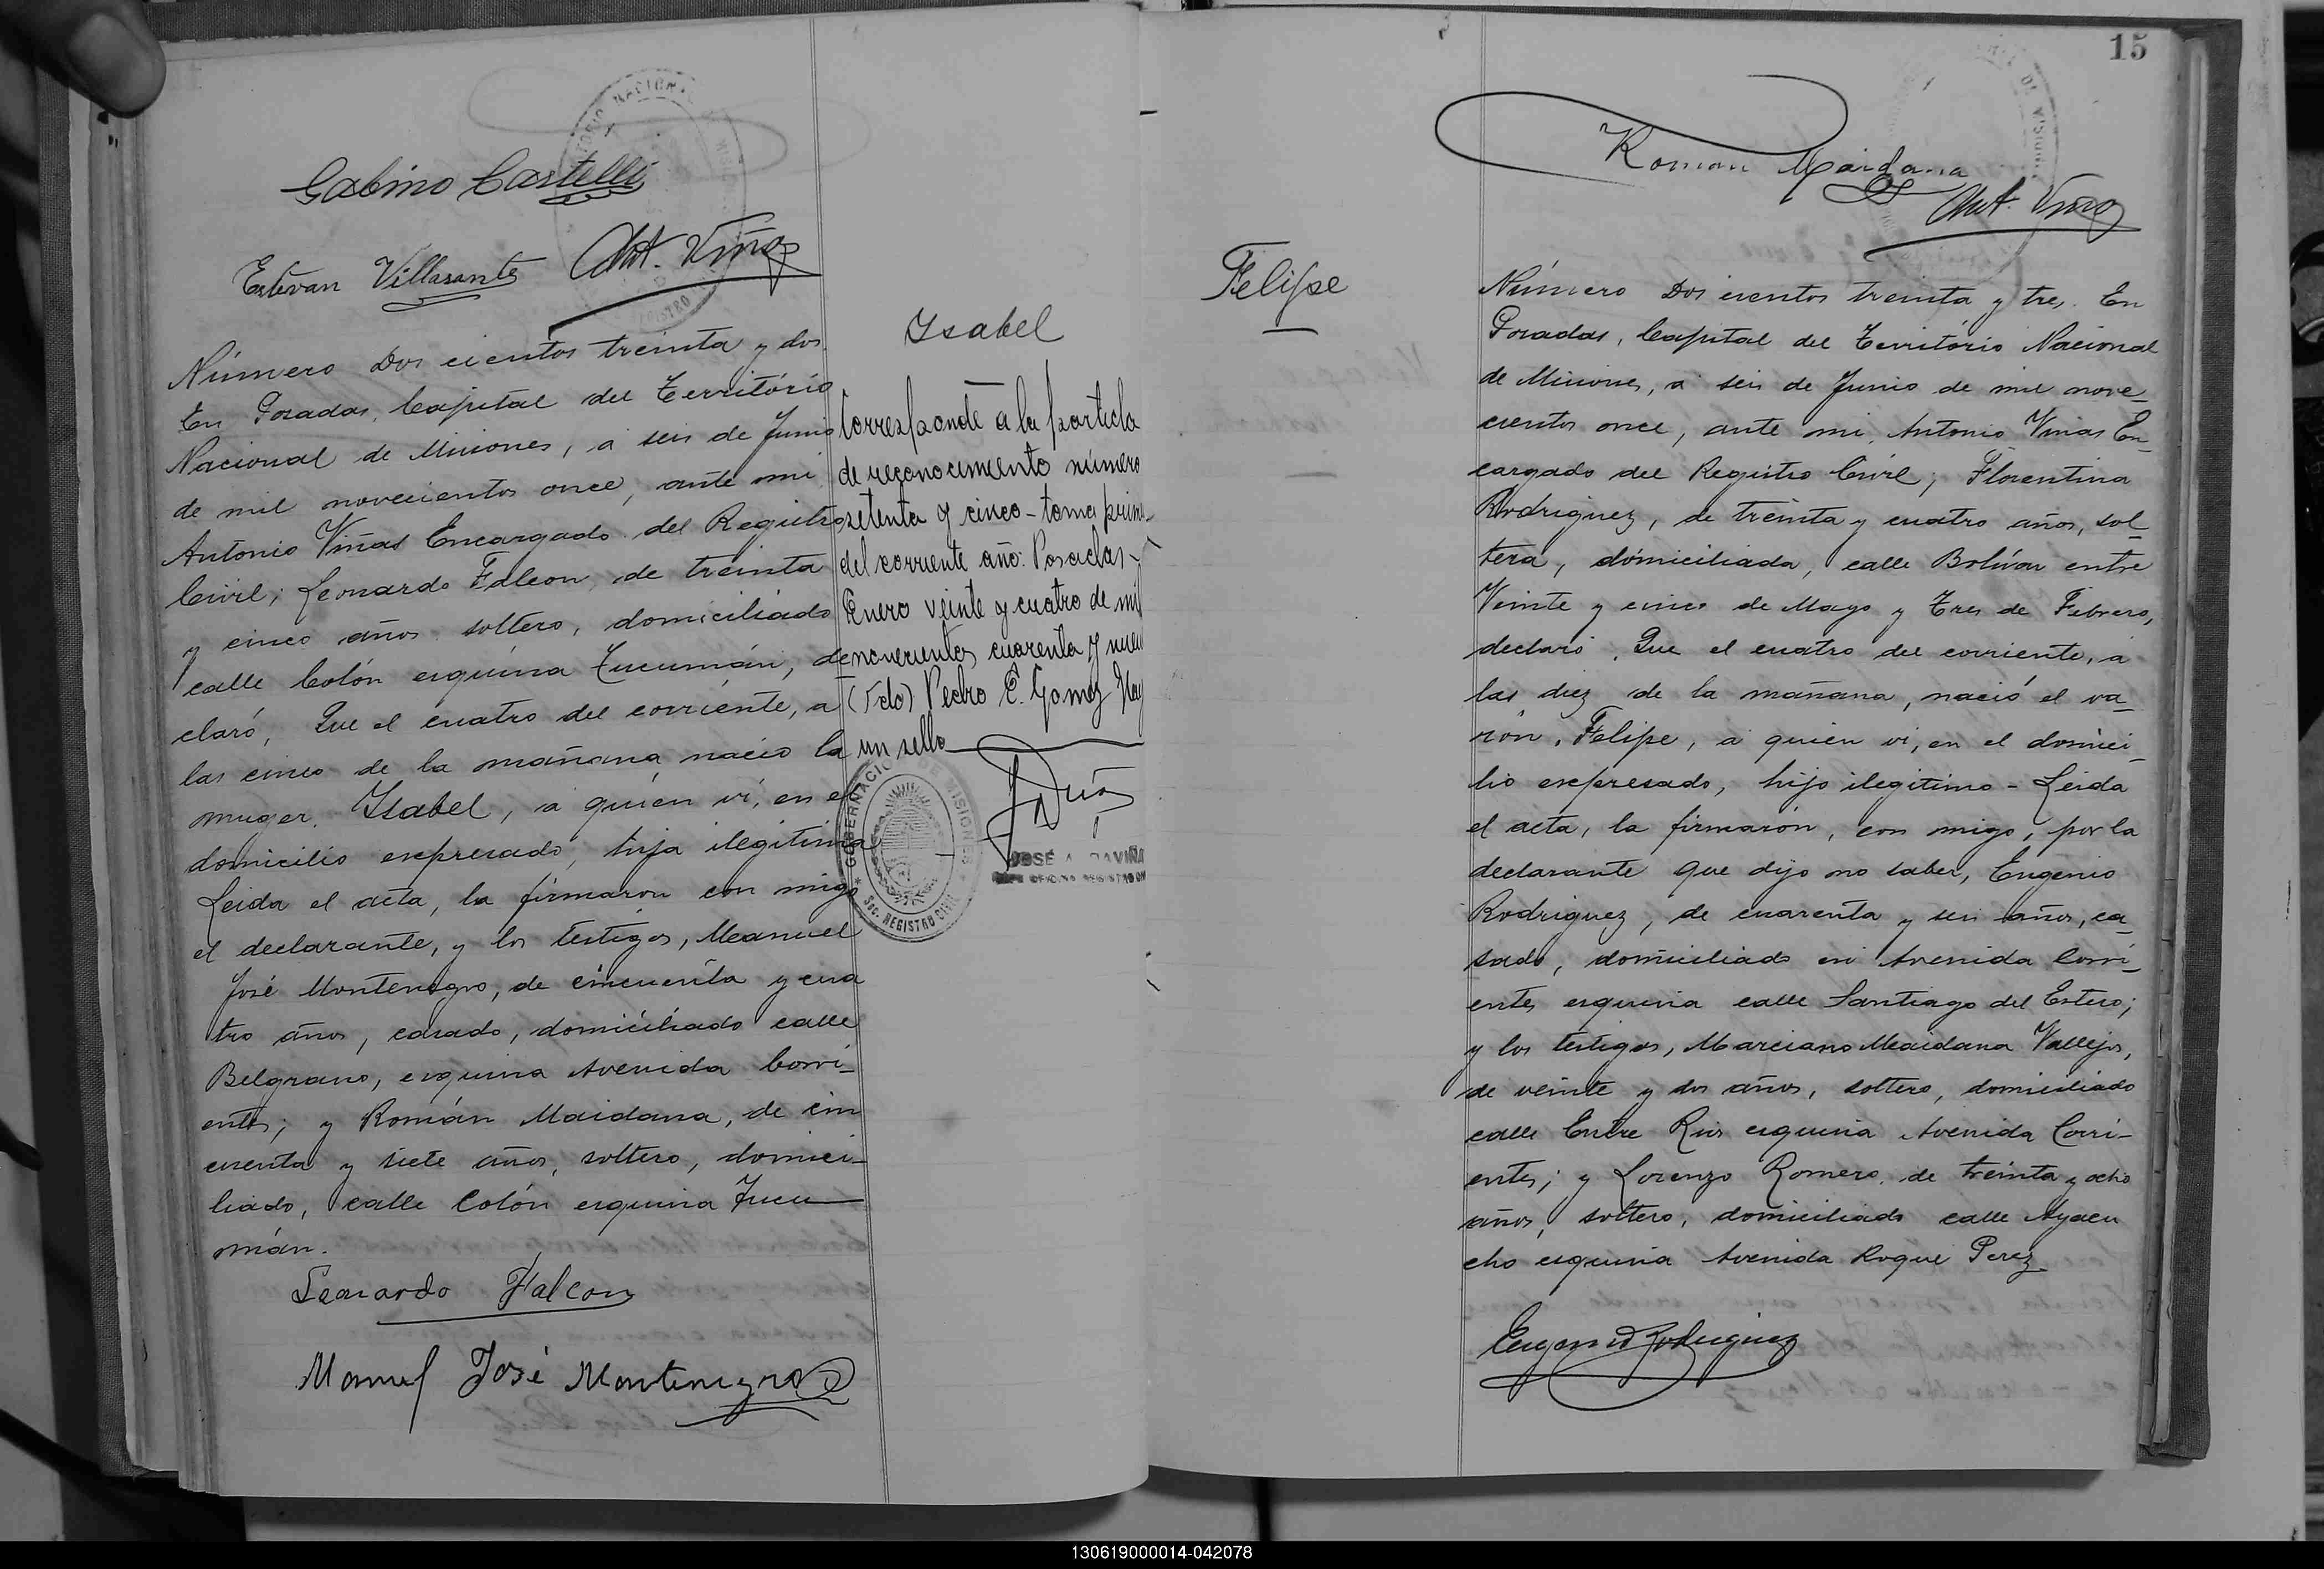 Gabino Castelli
Estevan Villasante Ant. Viñas
Número Dos cientos treinta y dos.
En Posadas, Capital del Território
Nacional de Misiones, á seis de Junio
de mil novecientos once, ante mi
Antonio Viñas Encargado del Registro
Civil; Leonardo Falcon, de treinta
y cinco años soltero, domiciliado
calle Colón esquina Tucumán, de
claró, Que el cuatro del corriente, a
las cinco de la mañana nació la
muger, Isabel, á quién ví, en el
domicilio expresado, hija ilegítima
Leida el acta, la firmaron con migo
el declarante, y los testigos, Manuel
José Montenegro, de cincuenta y cua
tro años, casado, domiciliado calle
Belgrano, esquina Avenida Corri_
entes; y Román Maidana, de cin
cuenta y siete años, soltero, domici_
liado, calle Colón esquina Tucu
mán.
Leonardo Falcon
Manuel José Montenegro
Isabel
Corresponde a la partida
de reconocimiento número
setenta y cinco - tomo prim
del corriente año: Posadas -
Enero veinte y cuatro de mil
novecientos cuarenta y nueve
(Fdo) Pedro E. Gomez Hay
un sello
GOBERNACION DE MISIONES
Sec. REGISTRO CIVIL
JOSÉ A. DAVIÑA
15
Roman Maidana
Ant. Viñas
Felipe
Número Dos cientos treinta y tres. En
Posadas, Capital del Território Nacional
de Misiones, á seis de Junio de mil nove_
cientos once, ante mi, Antonio Viñas En_
cargado del Registro Civil; Florentina
Rodriguez, de treinta y cuatro años, sol_
tera, domiciliada, calle Bolívar entre
Veinte y cinco de Mayo y Tres de Febrero,
declaró, Que el cuatro del corriente, á
las diez de la mañana, nació el va_
rón, Felipe, á quién ví, en el domici_
lio expresado, hijo ilegitimo - Leida
el acta, la firmarón, con migo, por la
declarante que dijo no saber, Eugenio
Rodriguez, de cuarenta y seis años, ca_
sado, domiciliado en Avenida Corri_
entes esquina calle Santiago del Estero;
y los testigos, Marciano Maidana Vallejos,
de veinte y dos años, soltero, domiciliado
calle Entre Rios esquina Avenida Corri-
entes; y Lorenzo Romero, de treinta y ocho
años, soltero, domiciliado calle Ayacu
cho esquina Avenida Roque Perez.
Eugenio Rodriguez
130619000014-042078